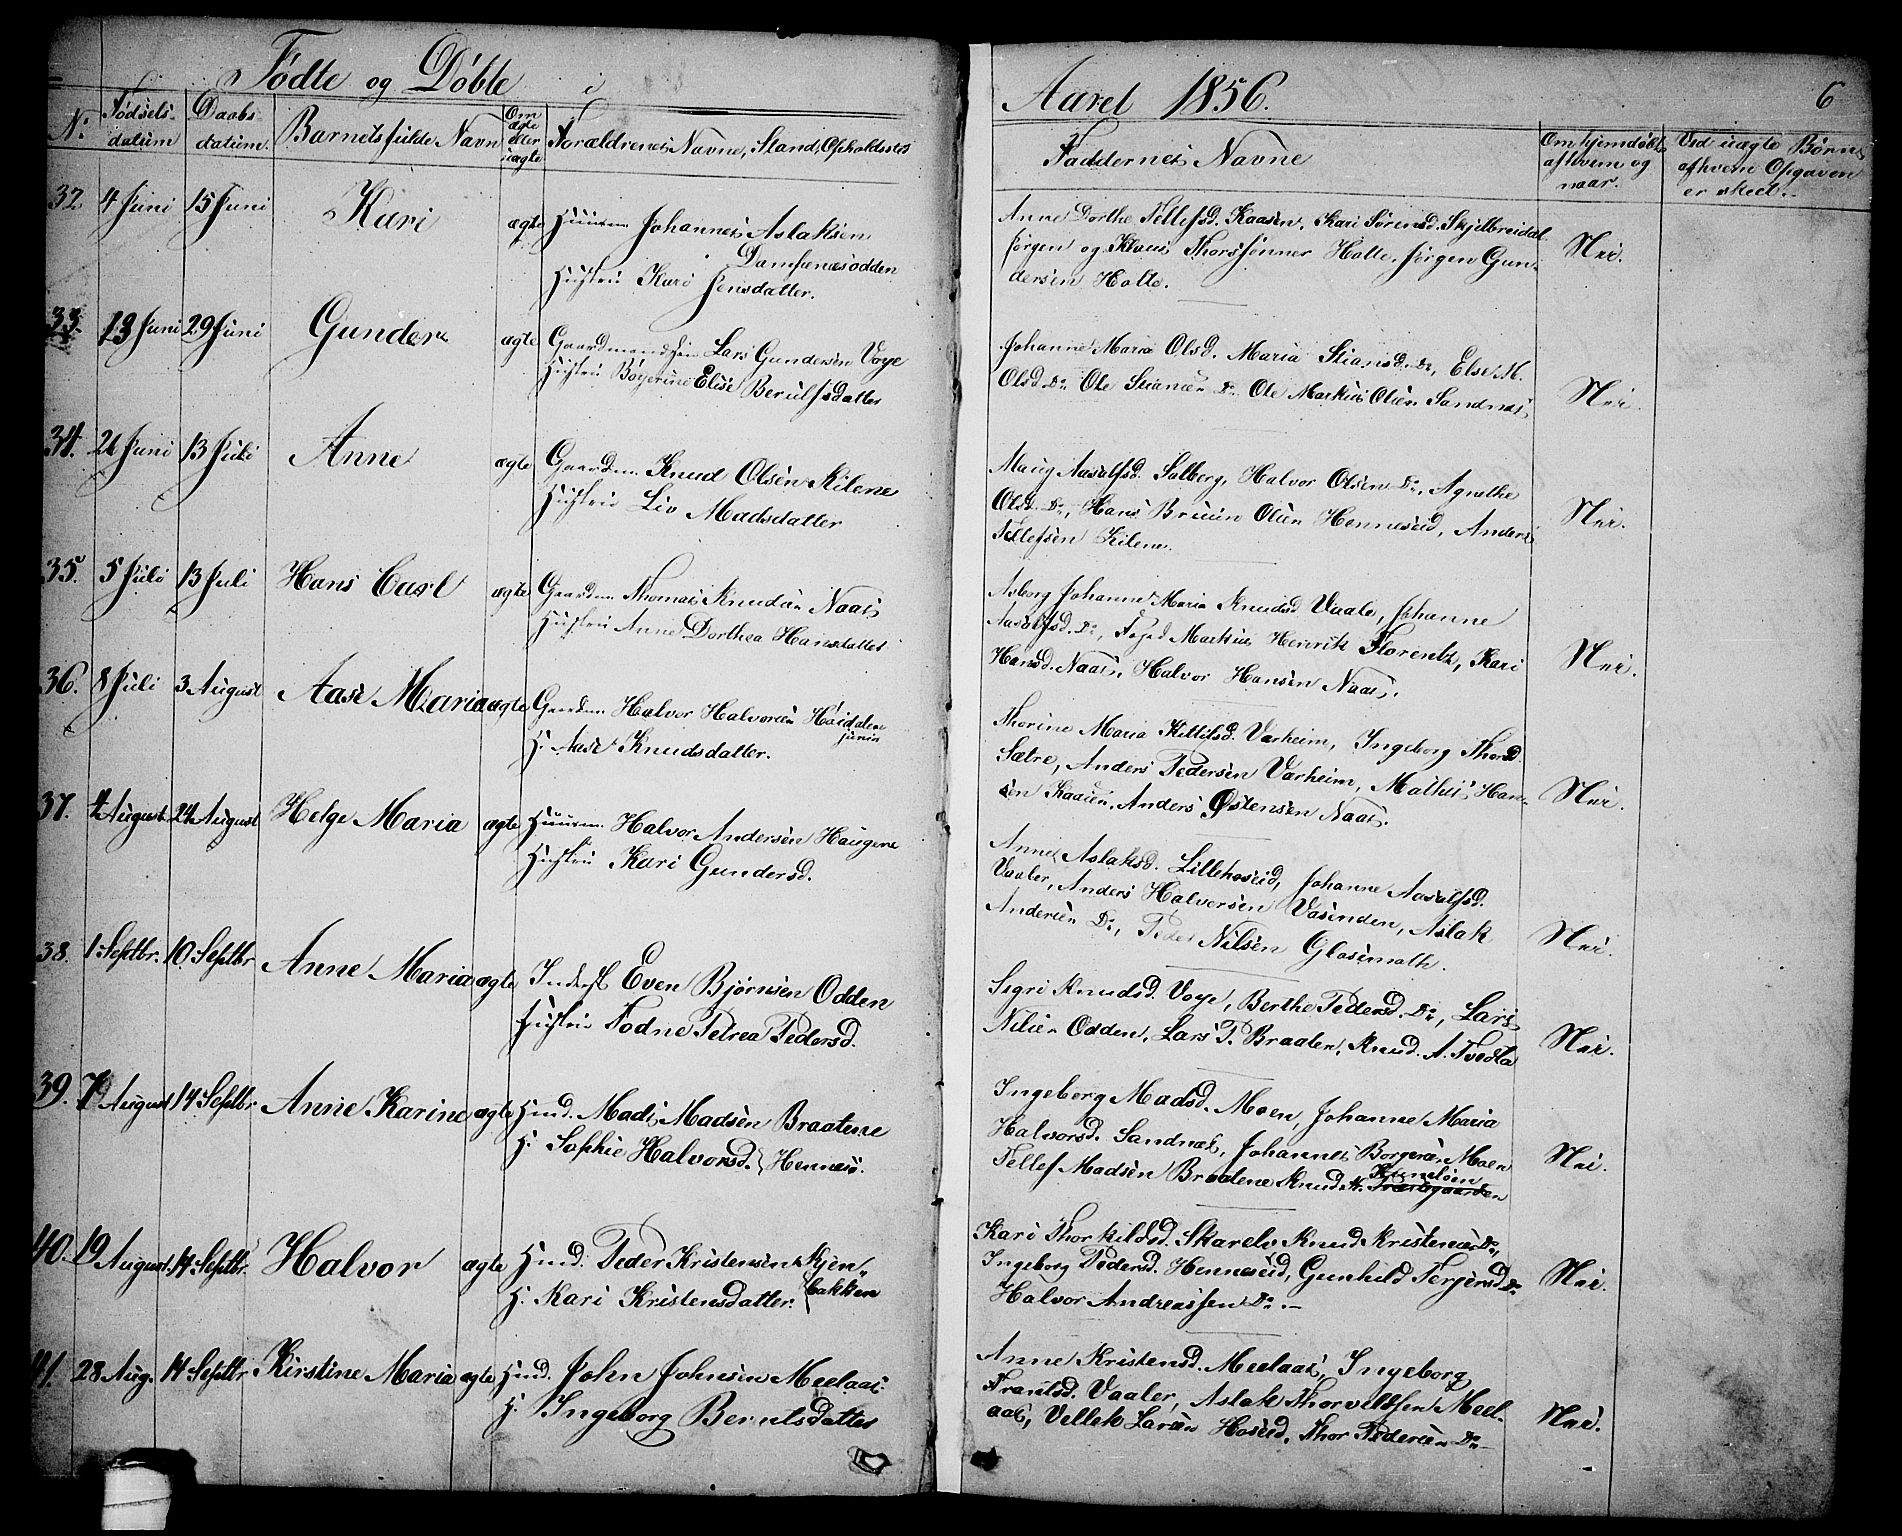 Fødte og Døbte i
Aaret 1856.
6
No
Fødsels-
datum
Daabs-
datum.
Barnets fulde Navn
Om
ægte
eller
uægte
Forældrenes Navne, Stand, Opholdssted
Faddernes Navne
Om hjemdøbt,
af hvem og
naar.
Ved uægte Børn,
af hvem Opgaven
er skeet.
32. 4 Juni 15 Juni Kari ægte Huusm. Johannes Aslaksen
Damsenæsodden
Hustru Kari Jensdatter.
Anne Dorthe Tellefsd. Kaasen, Kari Sørensd. Skjelbreidal
Jørgen og Klaus Thorssønner Holte, Jørgen Gun-
dersen Holte.
Nei.
33. 13 Juni 29 Juni Gunder ægte Gaardmandssøn Lars Gundersen Voye
Hustru Børgerine Elise Berulfsdatter
Johanne Maria Olsd. Maria Stiansd. Do, Else M.
Olsd. Do Ole Stiansen Do Ole Markus Olsen Sandnæs,
Nei.
34. 26 Juni 13 Juli Anne ægte Gaardm. Knud Olsen Kilene
Hustru Liv Madsdatter
Maug Aasulfsd. Solberg, Halvor Olsen Do, Agnethe
Olsd. Do, Hans Bruun Olsen Henneseid, Anders
Tellefsen Kilene.
Nei.
35. 5 Juli 13 Juli Hans Carl ægte Gaardm. Thomas Knudsen Naas
Hustru Anne Dorthea Hansdatter
Asborg Johanne Maria Knudsd Vaale, Johanne
Aasulfsd. Do, Foged Markus Henrik Florentz, Kari
Hansd. Naas, Halvor Hansen Naas.
Nei.
36. 8 Juli 3 August Aase Maria ægte Gaardm. Halvor Halvorsen Høidalen
junior
H. Aase Knudsdatter.
Thorine Maria Kittilsd. Varheim, Ingeborg Thorsd
Sætre, Anders Pedersen Varheim, Mathis Han-
sen Kaasen, Anders Østensen Naas.
Nei.
37. 4 August 24 August Helge Maria ægte Huusm. Halvor Andersen Haugene
Hustru Kari Gundersd.
Anne Aslaksd. Lillehoseid, Johanne Aasulfsd.
Vaaler, Anders Halvorsen Vasenden, Aslak
Andersen Do, Peder Nilsen Glosimoth.
Nei.
38. 1 Septbr. 10 Septbr Anne Maria ægte Inderst Even Bjørnsen Odden
Hustru Todne Petrea Pedersd.
Segri Knudsd. Voye, Berthe Pedersd. Do, Lars
Nilsen Odden, Lars P. Braaten, Knud A. Tvedta
Nei.
39. 7 August 14 Septbr Anne Karine ægte Hmd. Mads Madsen Braatene
H. Sophie Halvorsd. Hennesei.
Ingeborg Madsd. Moen, Johanne Maria
Halvorsd. Sandnæs, Johannes Borgersen Moen
Tellef Madsen Braatene Knud N.
Nei.
40. 19 August 14 Septbr Halvor ægte Hmd. Peder Kristensen Kjen-
bakken
H. Kari Kristensdatter.
Kari Thorkildsd. Skarelv Knud Kristensen Do,
Ingeborg Pedersd. Henneseid, Gunhild Terjersd Do
Halvor Andreassen Do.-
Nei.
41. 28 Aug. 14 Septbr Kirstine Maria ægte Hmd. John Johnsen Meelaas.
H. Ingeborg Berntsdatter
Anne Kristensd. Meelaas, Ingeborg
Frantsd. Vaaler, Aslak Thorvildsen Meel-
aas, Vellek Larsen Hoseid, Thor Pedersen Do
Nei.